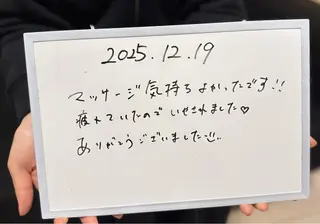 2025.12.19
マッサージ気持ちよかったです!!
疲れていたのでいやされました♡
ありがとうございました